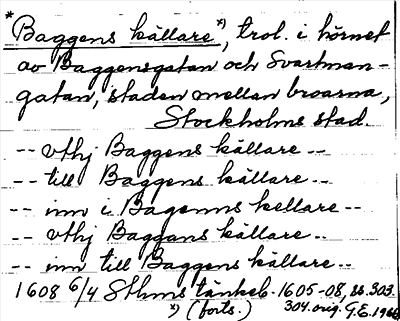 * Baggens källare *), trol. i hörnet
av Baggensgatan och Svartman-
gatan, staden mellan broarna,
Stockholms stad.
-- vthj Baggens källare --
-- till Baggens källare --
-- inn i Bagenns kellare --
-- vthj Baggans källare --
-- inn till Baggens källare --
1608 6/4 Sthms tänkeb. 1605-08, ss. 303.
*) (forts.) 304. orig. G.E. 1966